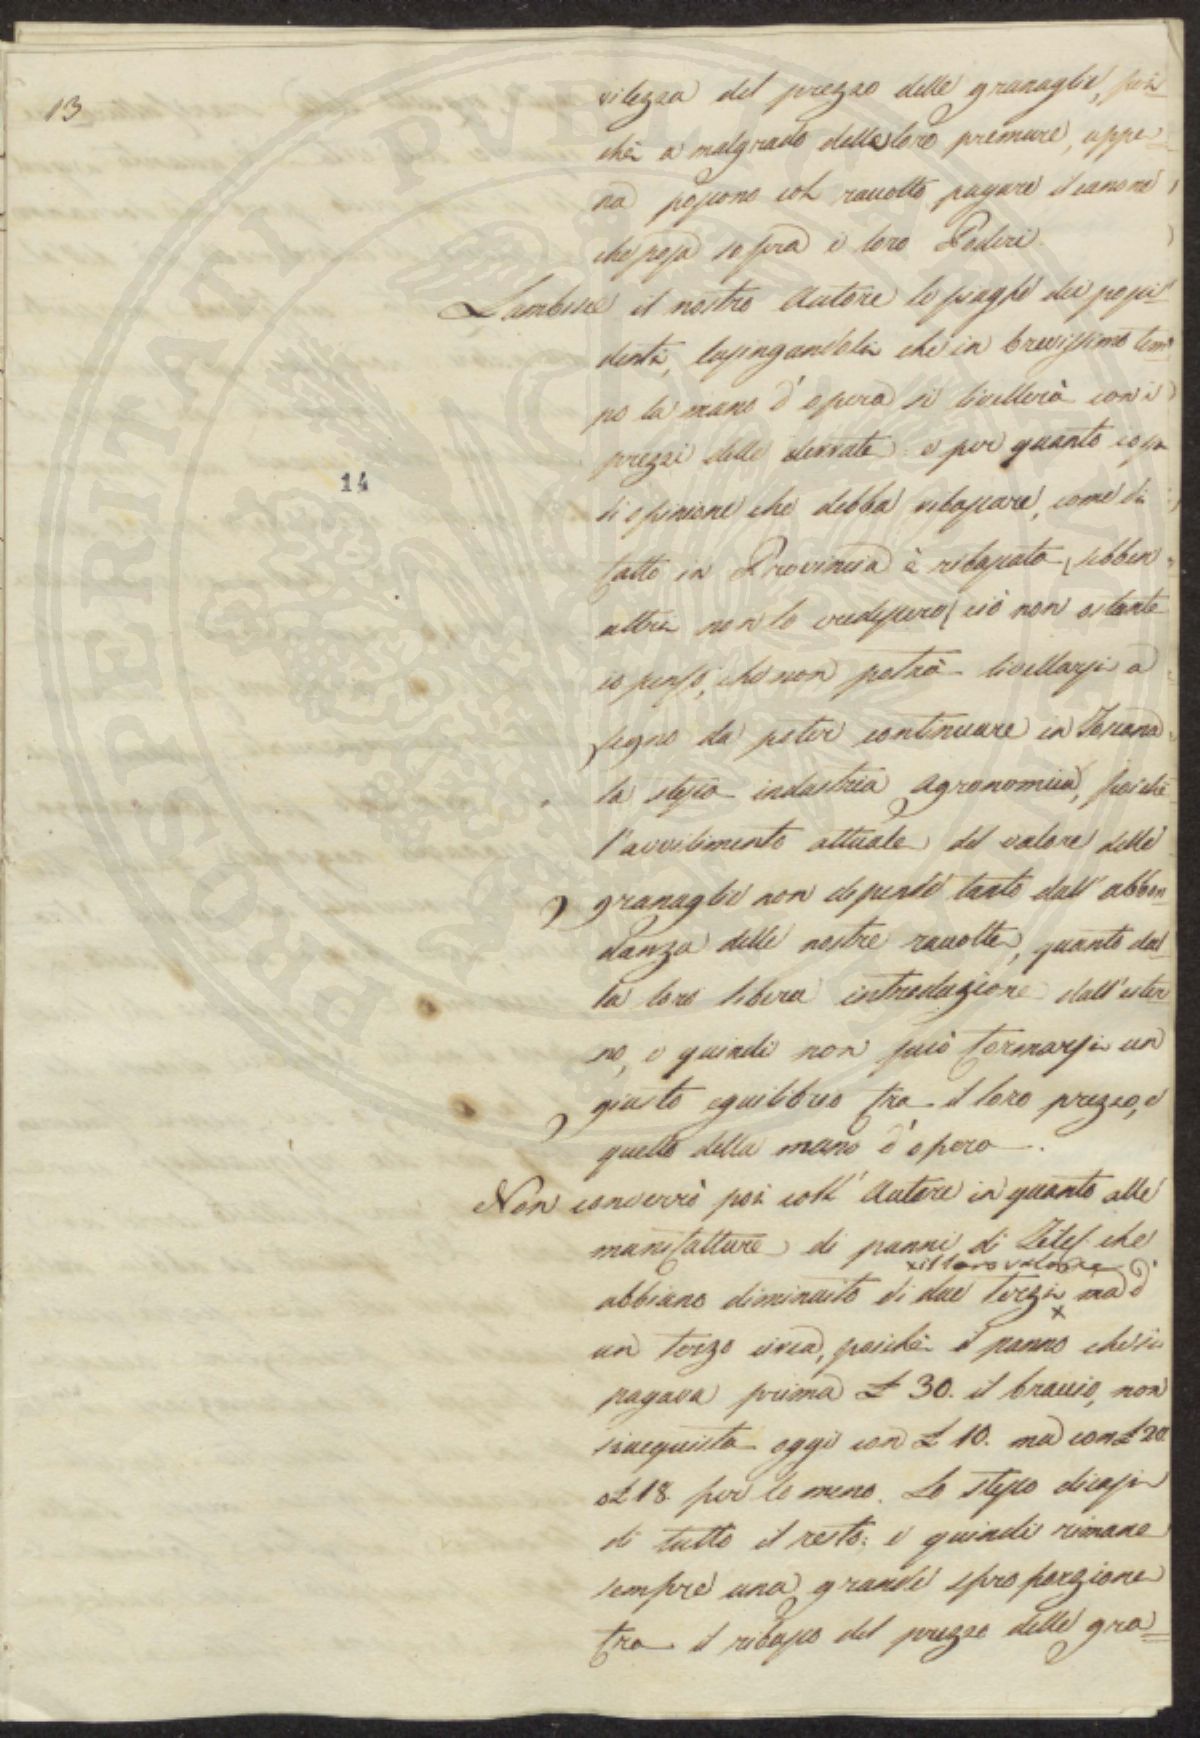 13
vilezza del prezzo delle granaglie, poi=
chè a malgrado delle loro premure, appe=
na possono col raccolto pagare il canone
che posa sopra i loro Poderi.
Lambisce il nostro Autore le piaghe dei possi=
denti, lusingandoli che in brevissimo tem=
po la mano d'opera si livellerà con i
prezzi delle derrate: e per quanto io sia
di opinione che debba ribassare, come di
fatto in Provincia è ribassata (sebben
altri non lo credessero) ciò non ostante
io penso, che non potrà livellarsi a
segno da poter continuare in Toscana
la stessa industria agronomica, poichè
l'avvilimento attuale del valore delle
granaglie non dipende tanto dall'abbon=
danza delle nostre raccolte, quanto dal=
la loro libera introduzione dall'ester=
no, e quindi non può formarsi un
giusto equilibrio tra il loro prezzo, e
quello della mano d'opera.
14
Non converrò poi coll'Autore in quanto alle
manifatture di panni, di Tele che
x il loro valore
abbiano diminuito di due terzi x ma d'
un terzo circa, poichè il panno che si
pagava prima £ 30. il braccio, non
si acquista oggi con £ 10. ma con £ 20.
o £ 18. per lo meno. Lo stesso dicasi
di tutto il resto: e quindi rimane
sempre una grande sproporzione
tra il ribasso del prezzo delle gra=
PROSPERITATI PVBLICAE